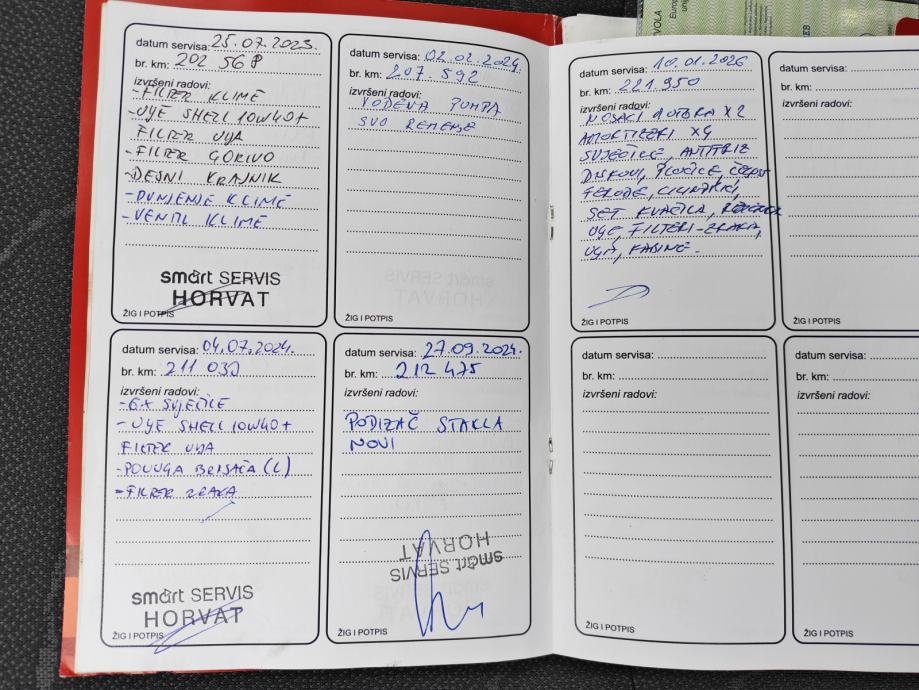 datum servisa: 25.07.2023.
br. km: 202 568
izvršeni radovi:
-FILTER KLIME
-ULJE SHELL 10W40+
FILTER ULJA
-FILTER GORIVO
-DESNI KRAJNIK
-PUNJENJE KLIME
-VENTIL KLIME
smart SERVIS
HORVAT
ŽIG I POTPIS
datum servisa: 02.02.2024.
br. km: 207.592
izvršeni radovi:
VODENA PUMPA
SVO REMENJE
smart SERVIS
HORVAT
ŽIG I POTPIS
datum servisa: 04.07.2024.
br. km: 211 030
izvršeni radovi:
-6X SVJEĆICE
-ULJE SHELL 10W40+
FILTER ULJA
-POLUGA BRISAČA (L)
-FILTER ZRAKA
smart SERVIS
HORVAT
ŽIG I POTPIS
datum servisa: 27.09.2024.
br. km: 212 475
izvršeni radovi:
PODIZAČ STAKLA
NOVI
smart SERVIS
HORVAT
ŽIG I POTPIS
TVOLA
datum servisa: 10.01.2026
br. km: 221 950
izvršeni radovi:
NOSAČI MOTORA X2
AMORTIZERI X4
SVJEĆICE, ANTIFRIZ
DISKOVI, PLOČICE,
CILINDRI,
SET KVAČILA,
ULJE, FILTERI-ZRAKA,
ULJA, KABINE.
ŽIG I POTPIS
datum servisa:
br. km:
izvršeni radovi:
ŽIG I POTPIS
datum servisa:
br. km:
izvršeni radovi:
ŽIG I POTPIS
datum servisa:
br. km:
izvršeni radovi:
ŽIG I POTPIS